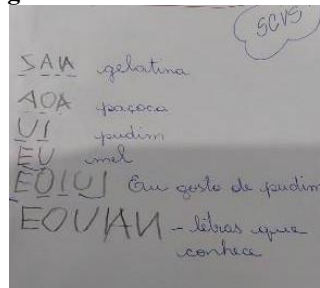 SCVS
SAN gelatina
AOA paçoca
UI pudim
EU mel
EOIUJ Eu gosto de pudim
EOUIAN - letras que
conhece